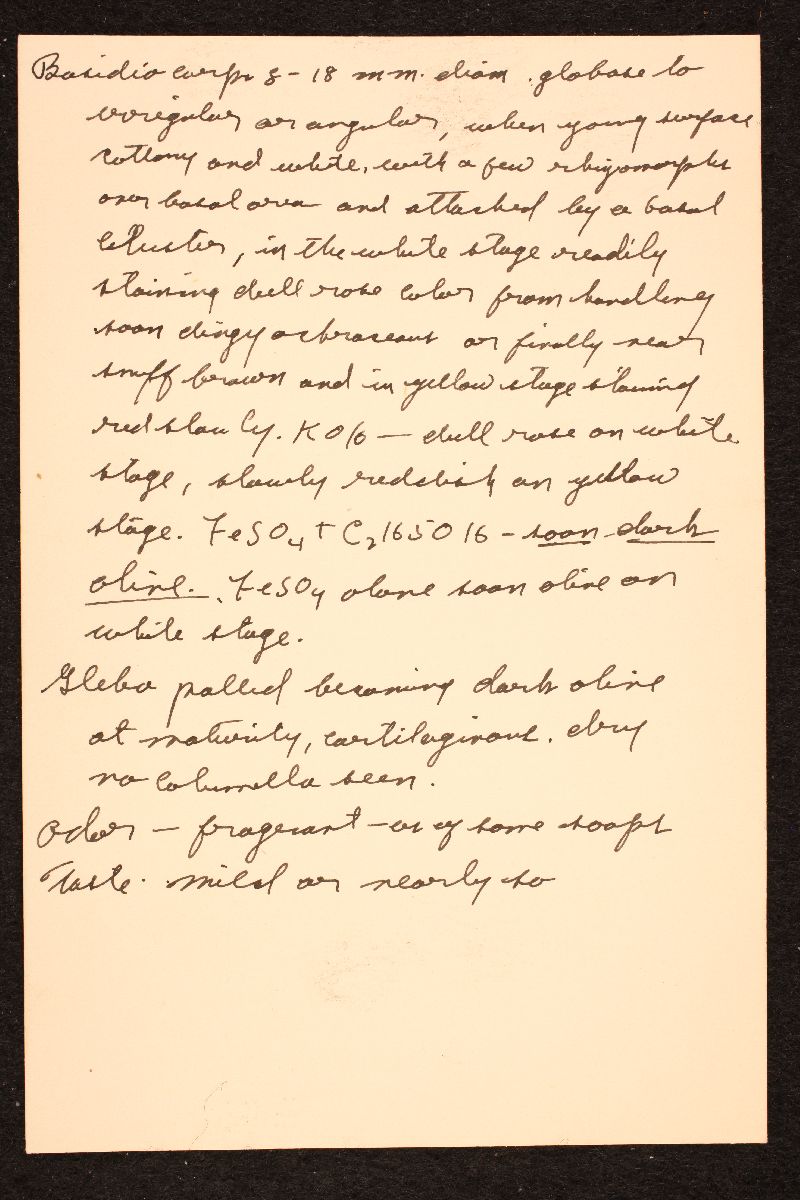 Basidiocarps 8-18 mm. diam. globose to
irregular or angular, when young surface
cottony and white, with a few rhizomorphs
over basal area and attached by a basal
cluster, in the white stage readily
staining dull rose color from handling
soon dingy ochraceous or finally near
snuff brown and in yellow stage staining
red slowly. KOH — dull rose on white
stage, slowly reddish on yellow
stage. FeSO4 + C2H5OH - soon dark
olive. FeSO4 alone soon olive on
white stage.
Gleba pallid becoming dark olive
at maturity, cartilaginous. dry
no columella seen.
Odor — fragerant - as of some soaps
Taste. mild or nearly so